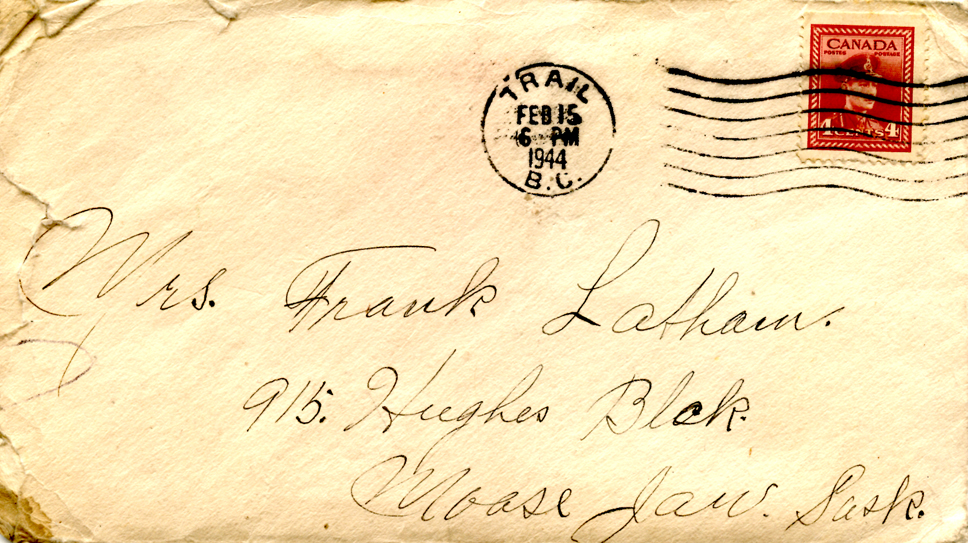 CANADA
POSTES POSTAGE
4 CENTS 4
TRAIL
FEB 15
6 PM
1944
B.C.
Mrs. Frank Latham.
915. Hughes Blck.
Moose Jaw. Sask.